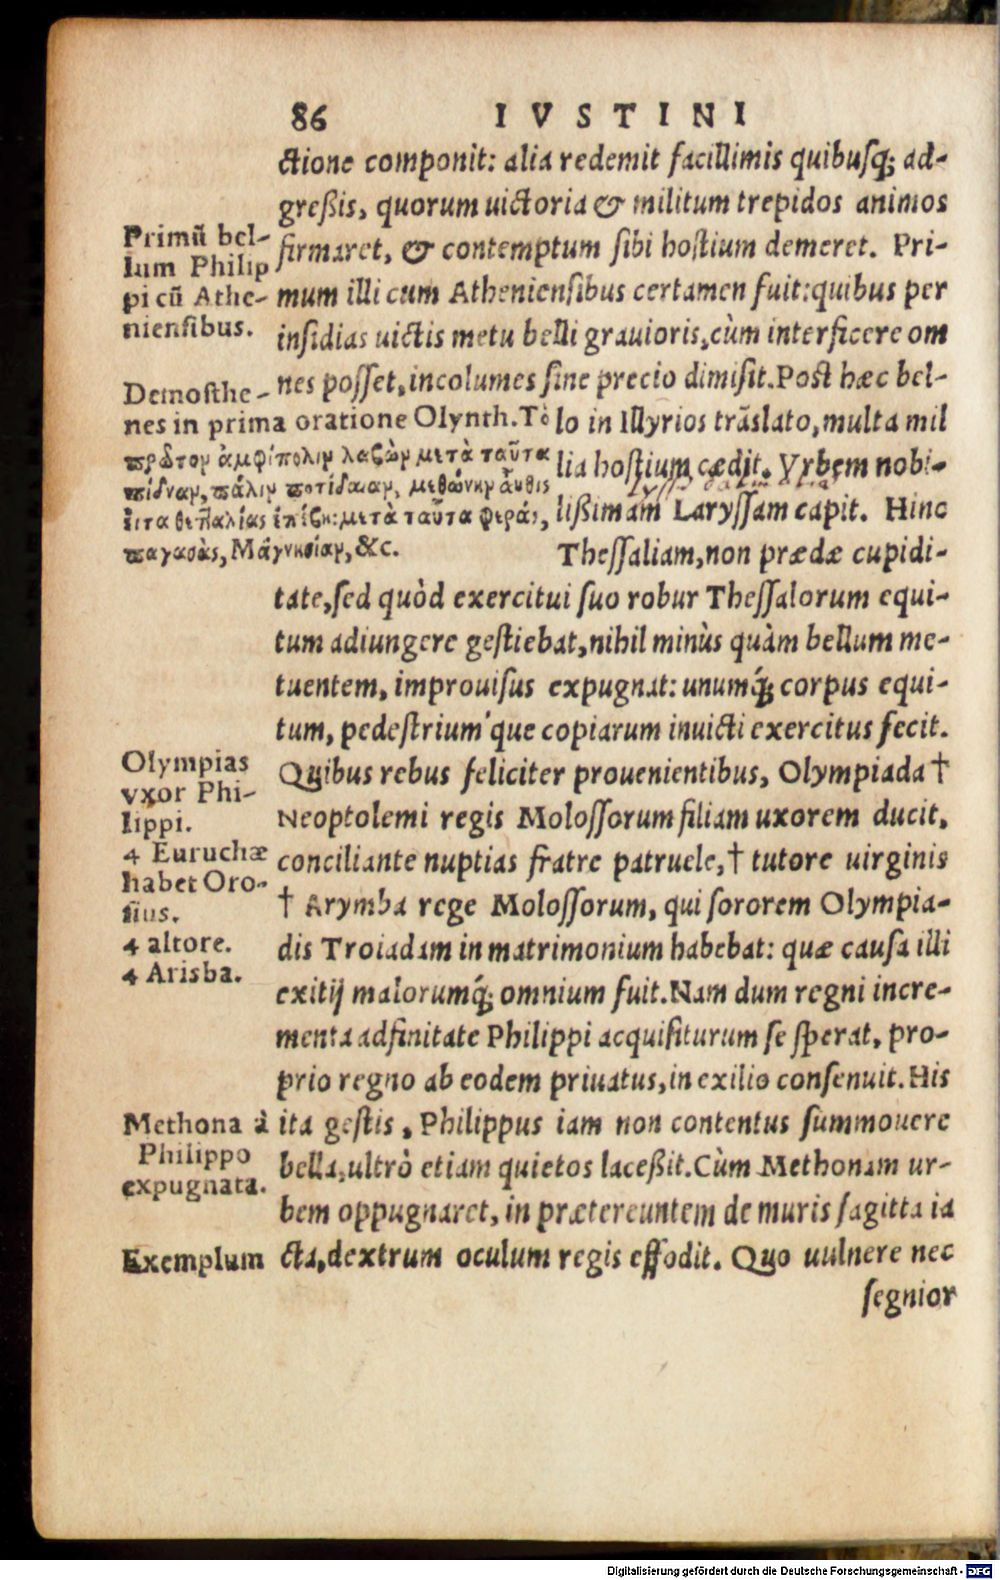 86 IVSTINI
ctione componit: alia redemit facillimis quibusq; ad-
greßis, quorum uictoria & militum trepidos animos
firmaret, & contemptum sibi hostium demeret. Pri-
mum illi cum Atheniensibus certamen fuit: quibus per
insidias uictis metu belli grauioris, cùm interficere om
nes posset, incolumes sine precio dimisit. Post hæc bel-
lo in Illyrios trãslato, multa mil
lia hostium cædit. Vrbem nobi-
lißimam Laryssam capit. Hinc
Thessaliam, non prædæ cupidi-
tate, sed quòd exercitui suo robur Thessalorum equi-
tum adiungere gestiebat, nihil minùs quàm bellum me-
tuentem, improuisus expugnat: unumq́; corpus equi-
tum, pedestrium'que copiarum inuicti exercitus fecit.
Quibus rebus feliciter prouenientibus, Olympiada †
Neoptolemi regis Molossorum filiam uxorem ducit,
conciliante nuptias fratre patruele, † tutore uirginis
† Arymba rege Molossorum, qui sororem Olympia-
dis Troiadam in matrimonium habebat: quæ causa illi
exitij malorumq́; omnium fuit. Nam dum regni incre-
menta adfinitate Philippi acquisiturum se sperat, pro-
prio regno ab eodem priuatus, in exilio consenuit. His
ita gestis, Philippus iam non contentus summouere
bella, ultrò etiam quietos laceßit. Cùm Methonam ur-
bem oppugnaret, in prætereuntem de muris sagitta ia
cta, dextrum oculum regis effodit. Quo uulnere nec
segnior
Primũ bel-
lum Philip
pi cũ Athe-
niensibus.
Demosthe-
nes in prima oratione Olynth. Τὸ
πρῶτον ἀμφίπολιν λαβὼν μετὰ ταῦτα
πύδναν, πάλιν ποτίδαιαν, μεθώνην αὖθις
εἶτα θετταλίας ἐπέβη: μετὰ ταῦτα φεράς,
παγασὰς, Μάγνησίαν, &c.
Olympias
vxor Phi-
lippi.
4 Euruchæ
habet Oro-
sius.
4 altore.
4 Arisba.
Methona à
Philippo
expugnata.
Exemplum
Digitalisierung gefördert durch die Deutsche Forschungsgemeinschaft - DFG